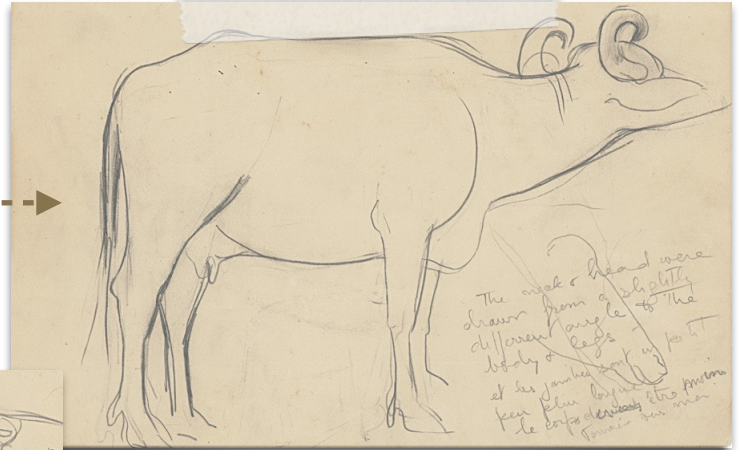 The neck & head were
drawn from a slightly
different angle to the
body & legs -
et les jambes sont un petit
peu plus longues
le corps être moins